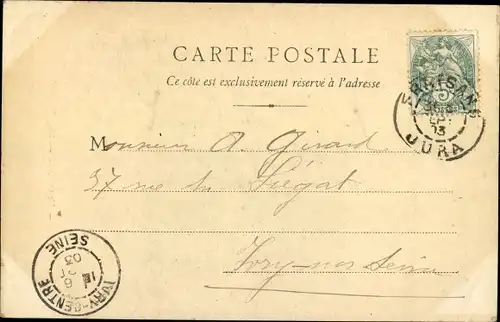 CARTE POSTALE
Ce côté est exclusivement réservé à l'adresse
Monsieur A. Girard
37 rue du Liégat
Ivry-sur-Seine
JURA
IVRY-CENTRE
6
03
SEINE